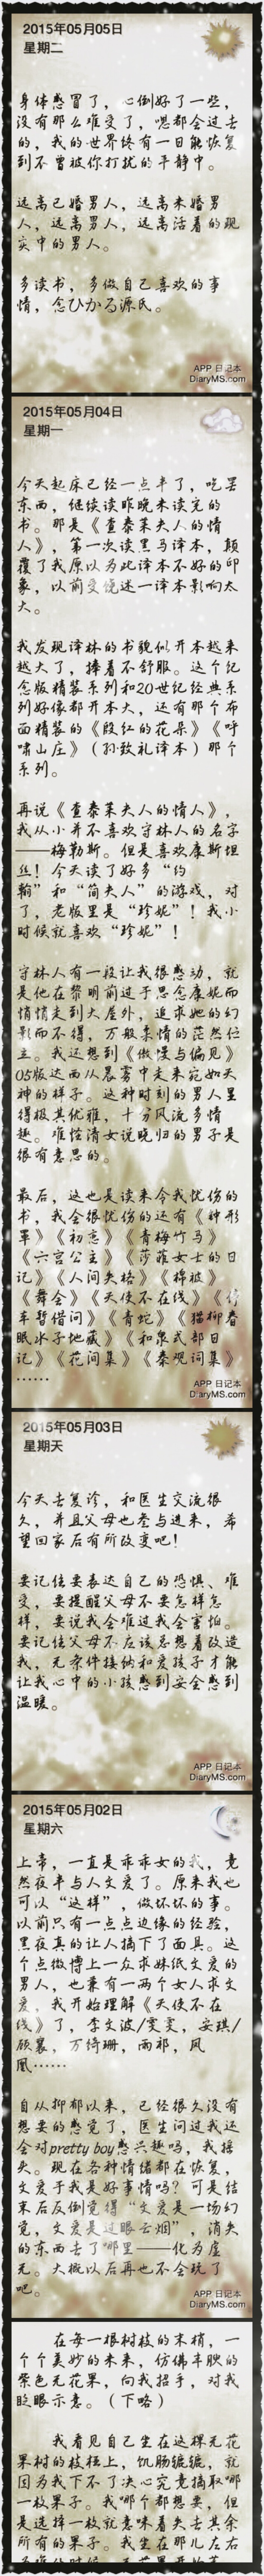 2015年05月05日
星期二
身体感冒了，心倒好了一些，
没有那么难受了，嗯都会过去
的，我的世界终有一日能恢复
到不曾被你打扰的平静中。
远离已婚男人，远离未婚男
人，远离男人，远离活着的现
实中的男人。
多读书，多做自己喜欢的事
情，念ひかる源氏。
APP 日记本
DiaryMS.com
2015年05月04日
星期一
今天起床已经一点半了，吃罢
东西，继续读昨晚未读完的
书。那是《查泰莱夫人的情
人》，第一次读黑马译本，颠
覆了我原以为此译本不好的印
象，以前受饶述一译本影响太
大。
我发现译林的书貌似开本越来
越大了，捧着不舒服。这个纪
念版精装系列和20世纪经典系
列好像都开本大，还有那个布
面精装的《殷红的花朵》《呼
啸山庄》（孙致礼译本）那个
系列。
再说《查泰莱夫人的情人》，
我从小并不喜欢守林人的名字
——梅勒斯。但是喜欢康斯坦
丝！今天读了好多“约
翰”和“简夫人”的游戏，对
了，老版里是“珍妮”！我小
时候就喜欢“珍妮”！
守林人有一段让我很感动，就
是他在黎明前过于思念康妮而
悄悄走到大屋外，追求她的幻
影而不得，万般柔情的茫然伫
立。我还想到《傲慢与偏见》
05版达西从晨雾中走来宛如天
神的样子。这种时刻的男人显
得极其优雅，十分风流多情
趣。难怪清女说晓归的男子是
很有意思的。
最后，这也是读来令我忧伤的
书，我会很忧伤的还有《钟形
罩》《初恋》《青梅竹马》
《六宫公主》《莎菲女士的日
记》《人间失格》《棉被》
《舞会》《天使不在线》《停
车暂借问》《青蛇》《猫柳春
眠水子地藏》《和泉式部日
记》《花间集》《秦观词集》
……
APP 日记本
DiaryMS.com
2015年05月03日
星期天
今天去复诊，和医生交流很
久，并且父母也参与进来，希
望回家后有所改变吧！
要记住要表达自己的恐惧、难
受，要提醒父母不要怎样怎
样，要说我会难过我会害怕。
要记住父母不应该总想着改造
我，无条件接纳和爱孩子才能
让我心中的小孩感到安全感到
温暖。
APP 日记本
DiaryMS.com
2015年05月02日
星期六
上帝，一直是乖乖女的我，竟
然夜半与人文爱了。原来我也
可以“这样”，做坏坏的事。
以前只有一点点边缘的经验，
黑夜真的让人摘下了面具。这
个点微博上一众求妹纸文爱的
男人，也兼有一两个女人求文
爱，我开始理解《天使不在
线》了，李文波/雯雯，安琪/
顾襄，万绮珊，雨祁，凤
凰……
自从抑郁以来，已经很久没有
想要的感觉了，医生问过我还
会对pretty boy感兴趣吗，我摇
头。现在各种情绪都在恢复，
文爱于我是好事情吗？可是结
束后反倒觉得“文爱是一场幻
觉，文爱是过眼云烟”，消失
的东西去了哪里——化为虚
无。大概以后再也不会玩了
吧。
APP 日记本
DiaryMS.com
在每一根树枝的末梢，一
个个美妙的未来，仿佛丰腴的
紫色无花果，向我招手，对我
眨眼示意。（下略）
我看见自己坐在这棵无花
果树的枝桠上，饥肠辘辘，就
因为我下不了决心究竟摘取哪
一枚果子。我哪个都想要，但
是选择一枚就意味着失去其余
所有的果子。我坐在那儿左右